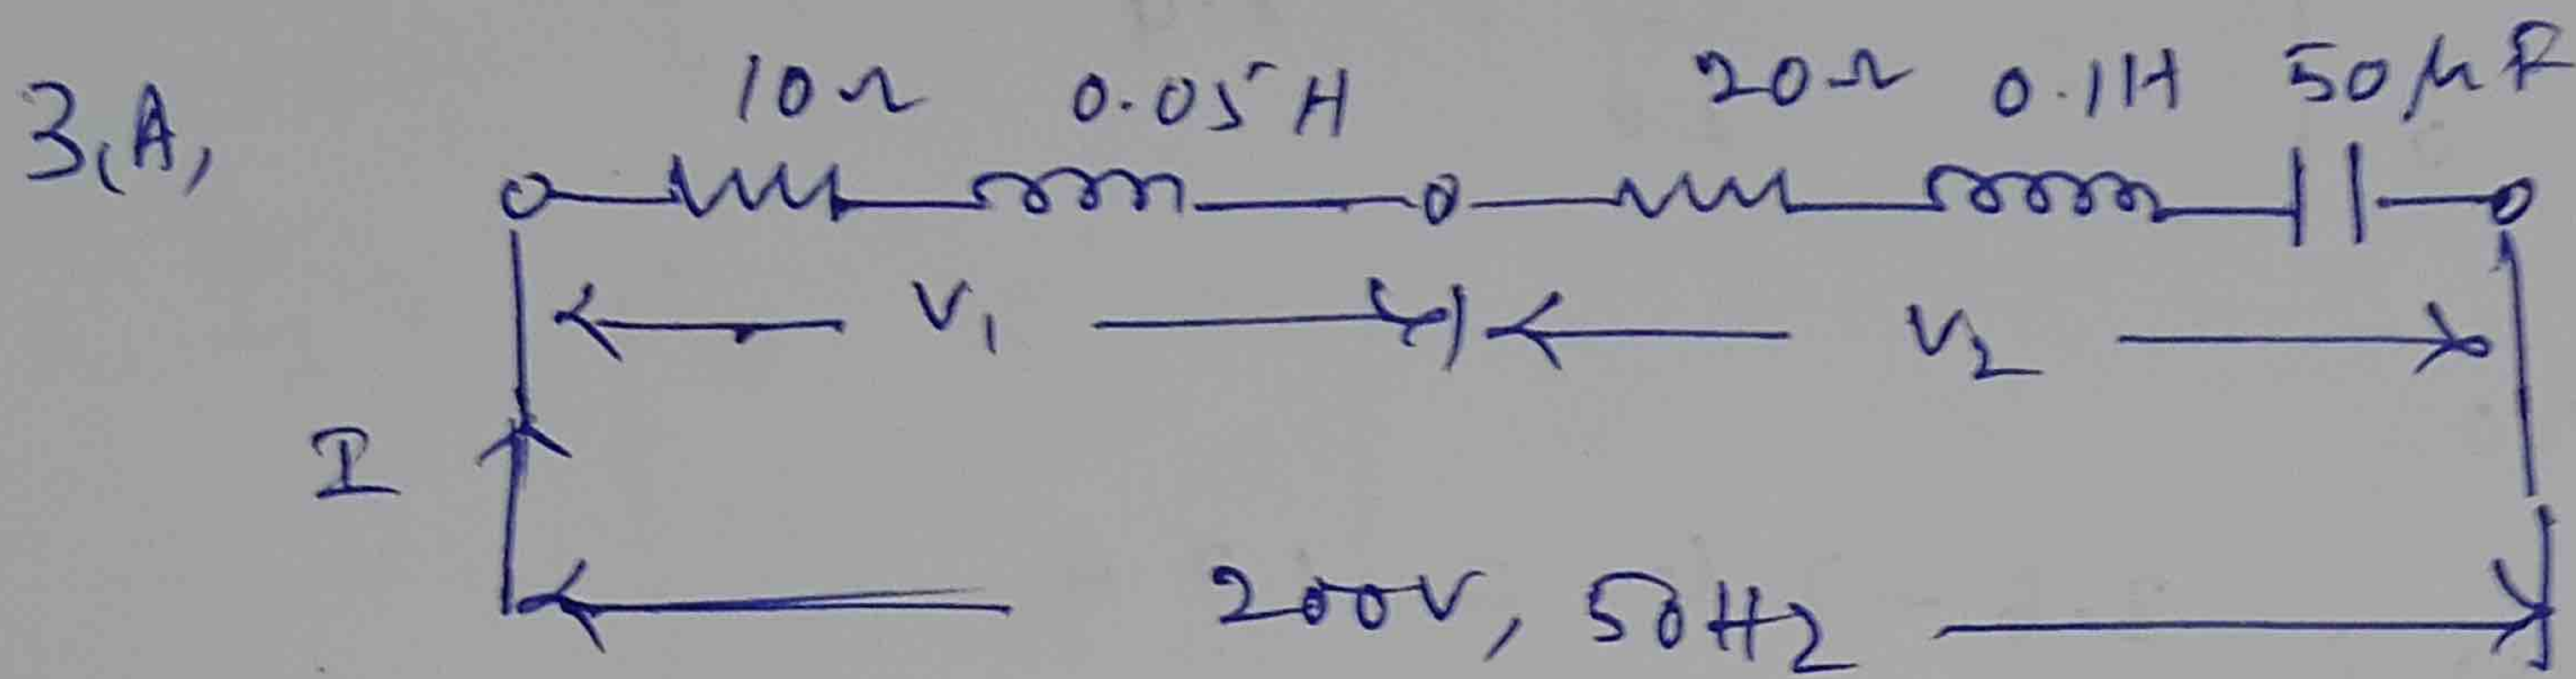 3(A,
10Ω 0.05H 20Ω 0.1H 50μF
V1 V2
I
200V, 50Hz